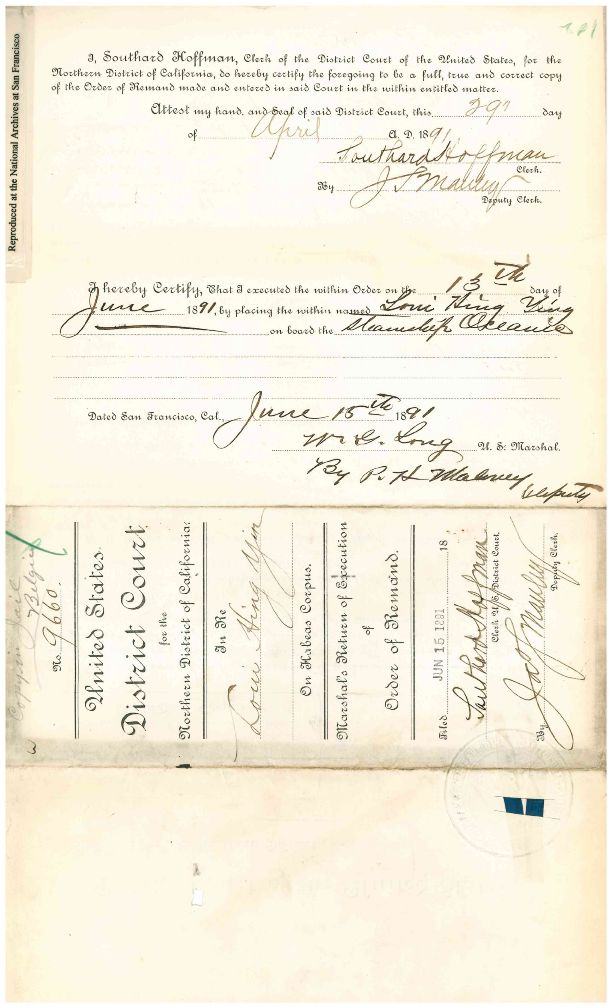 Reproduced at the National Archives at San Francisco
I, Southard Hoffman, Clerk of the District Court of the United States, for the
Northern District of California, do hereby certify the foregoing to be a full, true and correct copy
of the Order of Remand made and entered in said Court in the within entitled matter.
Attest my hand, and Seal of said District Court, this 29" day
of April A. D. 1891
Southard Hoffman
Clerk.
By J S Manley
Deputy Clerk.
I hereby Certify, That I executed the within Order on the 13th day of
June 1891, by placing the within named Loui Hing Ying
on board the Steamship Oceanic
Dated San Francisco, Cal., June 15th 1891
W. G. Long U. S. Marshal.
By P. H. Maloney
Deputy
Belgic
No. 9660.
United States
District Court
for the
Northern District of California:
In Re
Loui Hing Yin
On Habeas Corpus.
Marshal's Return of Execution
of
Order of Remand.
Filed JUN 15 1891 18
Southard Hoffman
Clerk U. S. District Court.
By Manley
Deputy Clerk.